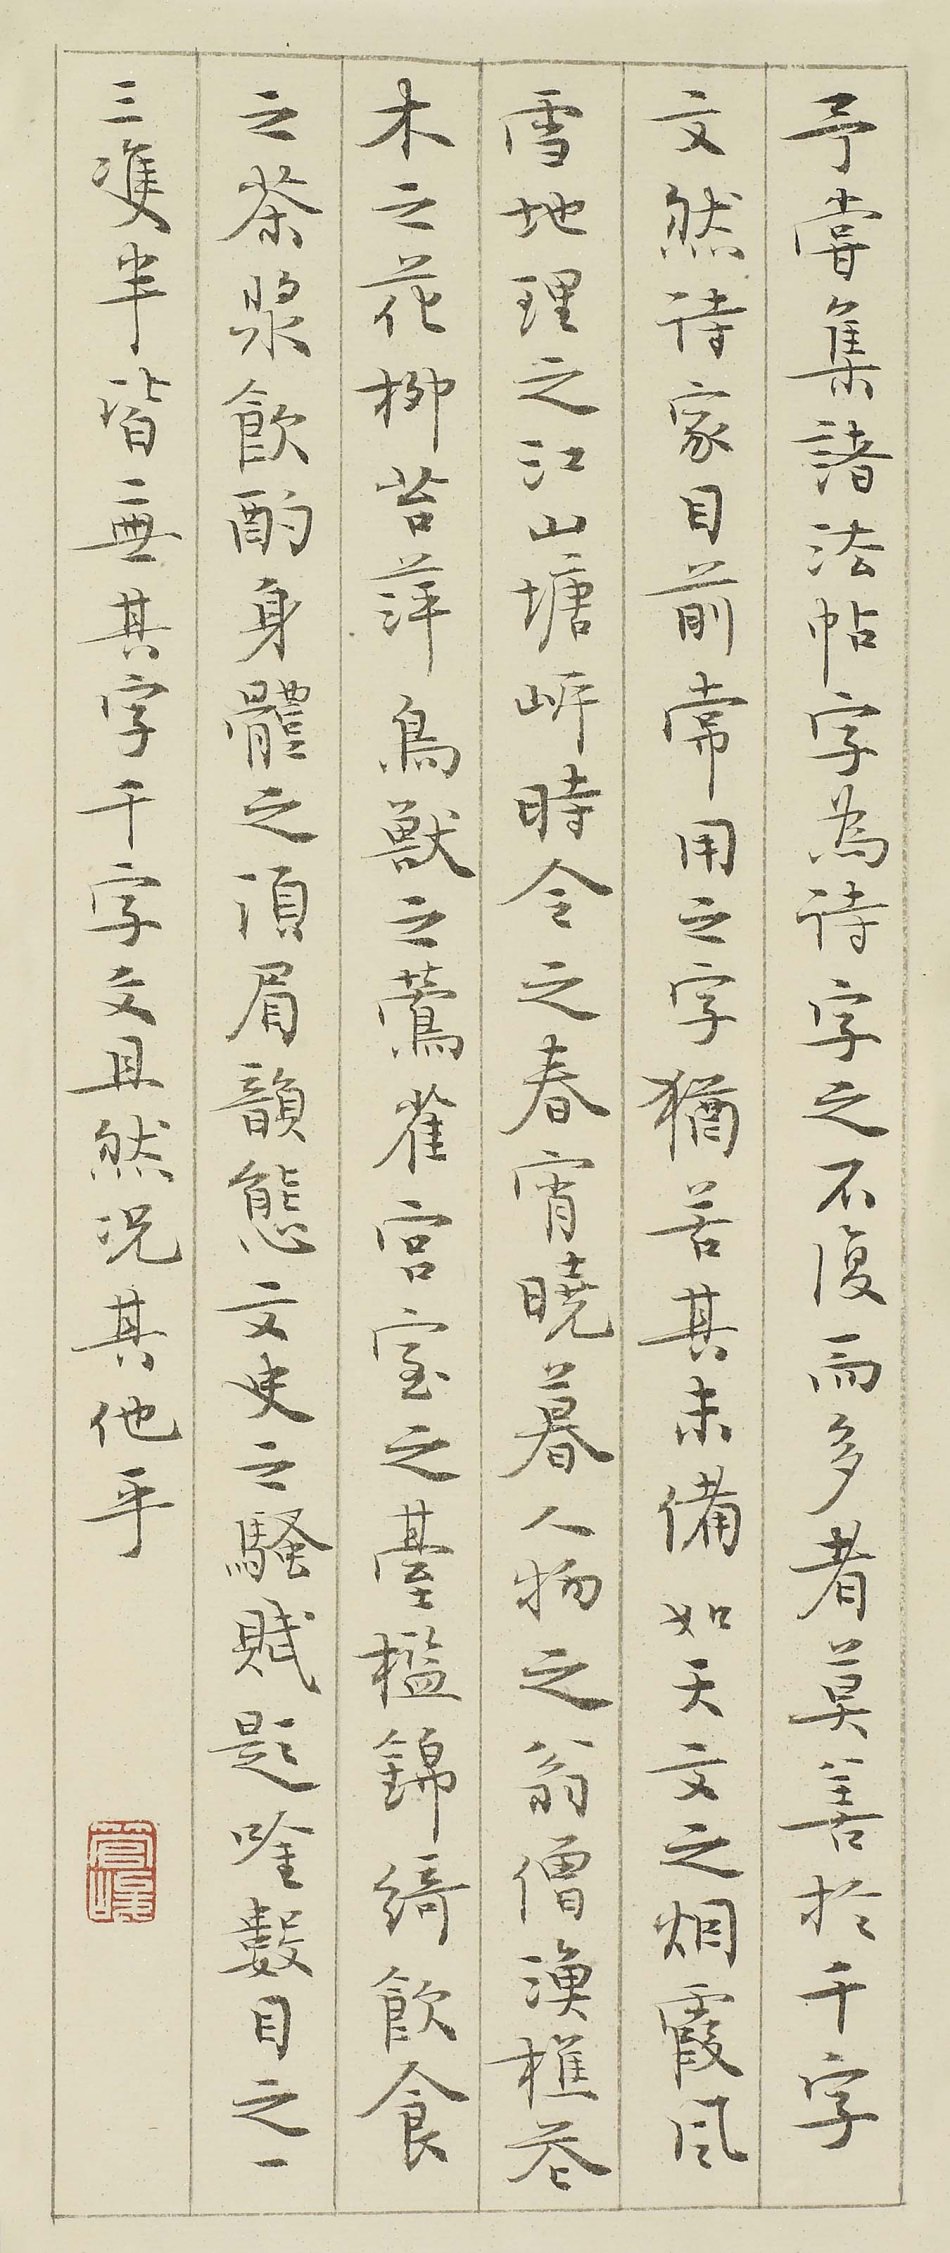 予嘗集諸法帖字為詩字之不復而多者莫善於千字
文然詩家目前常用之字猶苦其未備如天文之烟霞風
雪地理之江山塘岸時令之春宵曉暮人物之翁僧漁樵花
木之花柳苔萍鳥獸之鶯雀宮室之臺檻錦綺飲食
之茶漿飲酌身體之須眉韻態文史之騷賦題唫數目之一
三雙半皆無其字千字文且然況其他乎